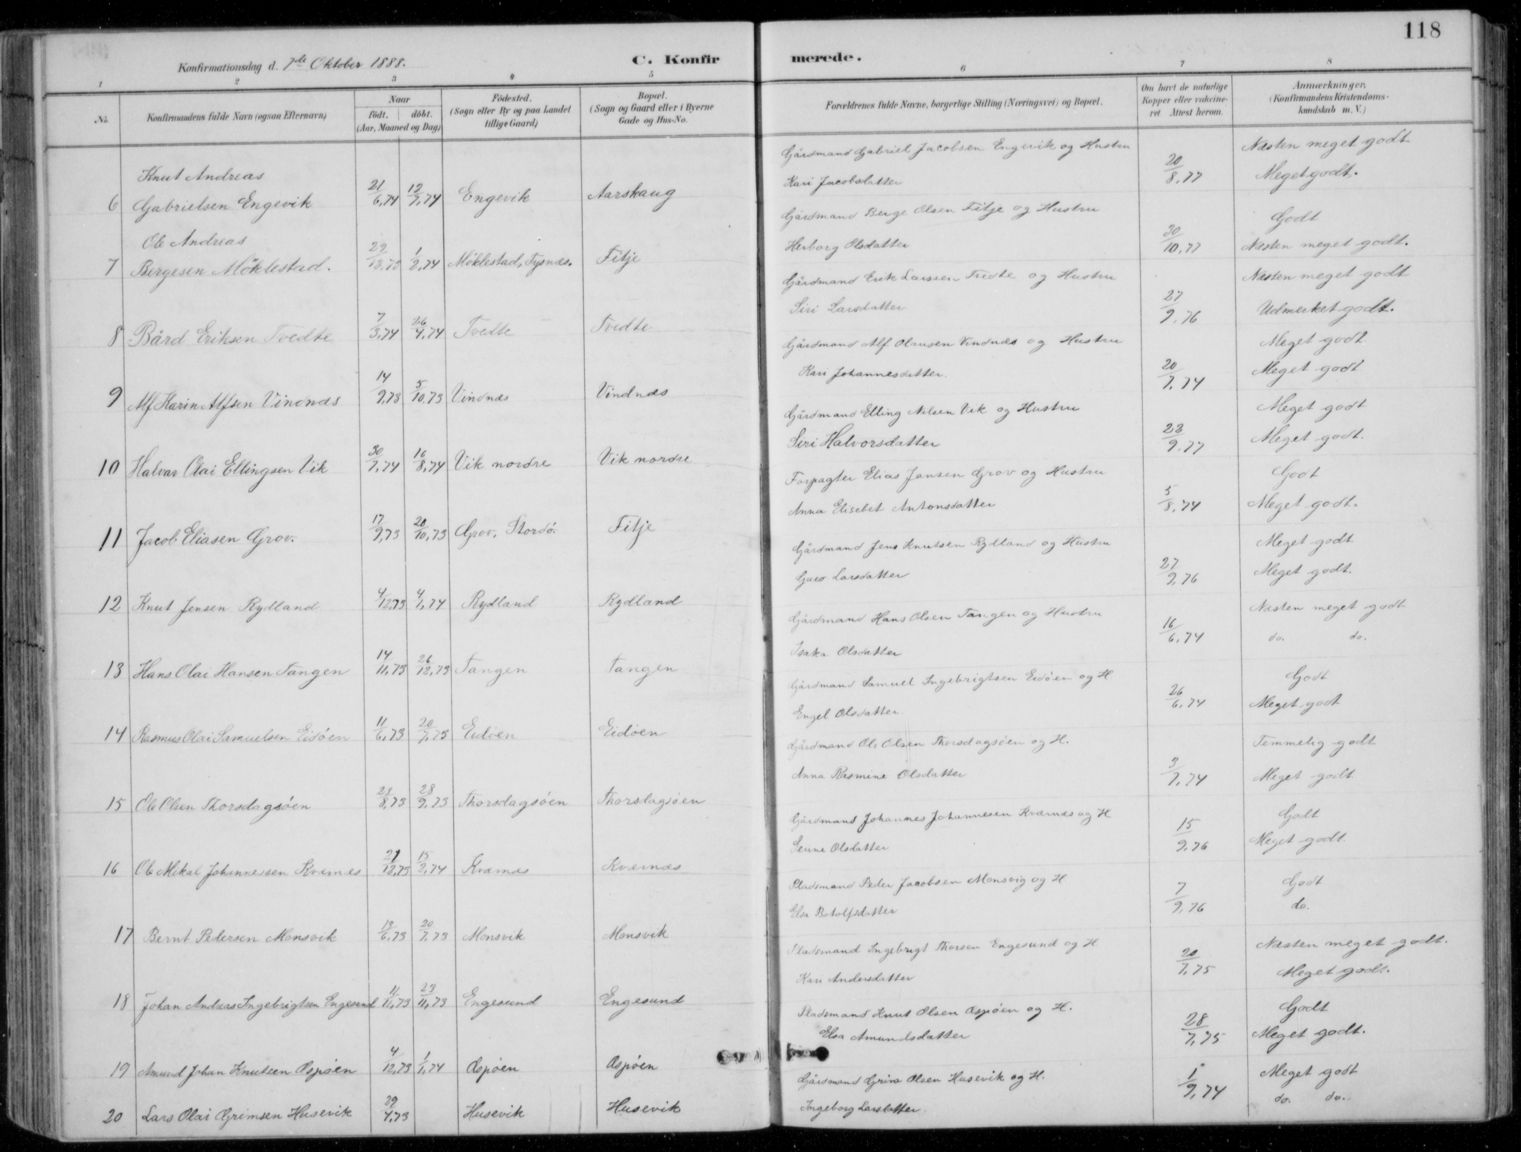 118
Konfirmationsdag d. 7de Oktober 1888.
C. Konfirmerede.
1 2 3 4 5 6 7 8
No. Konfirmandens fulde Navn (ogsaa Efternavn) Naar født. døbt. (Aar, Maaned og Dag) Fødested. (Sogn eller By og paa Landet tillige Gaard) Bopæl. (Sogn og Gaard eller i Byerne Gade og Hus-No. Forældrenes fulde Navne, borgerlige Stilling (Næringsvei) og Bopæl. Om havt de naturlige Kopper eller vakcineret Attest herom. Anmærkninger. (Konfirmandens Kristendomskundskab m. V.)
Knut Andreas Gårdmand Gabriel Jacobsen Engevik og Hustru Næsten meget godt
6 Gabrielsen Engevik 21/6,74 12/7,74 Engevik Aarskaug Kari Jacobsdatter 20/8,77 Meget godt.
Ole Andreas Gårdmand Berge Olsen Fitje og Hustru Godt
7 Bergesen Møklestad. 1/2,74 Møklestad, Tysnæs. Fitje Herborg Olsdatter 30/10,77 Næsten meget godt.
Gårdmand Erik Larssen Tvedte og Hustru Næsten meget godt
8 Bård Eriksen Tvedte 7/3,74 26/4,74 Tvedte Tvedte Siri Larsdatter 27/9,76 Udmerket godt.
Gårdmand Alf Olausen Vindnæs og Hustru Meget godt
9 Alf Karin Alfsen Vindnæs 14/9,73 5/10,73 Vindnæs Vindnæs Kari Johannesdatter 20/7,74 Meget godt
Gårdmand Elling Nilsen Vik og Hustru Meget godt
10 Halvar Olai Ellingsen Vik 30/7,74 16/8,74 Vik nordre Vik nordre Siri Halvorsdatter 23/9,77 Meget godt.
Forpagter Elias Jansen Grov og Hustru Godt
11 Jacob Eliasen Grov. 17/9,73 20/10,73 Grov, Stordø. Fitje Anna Elisebet Antonsdatter 5/8,74 Meget godt.
Gårdmand Jens Knutsen Rydland og Hustru Meget godt
12 Knut Jensen Rydland 4/12,73 4/1,74 Rydland Rydland Guro Larsdatter 27/9,76 Meget godt.
Gårdmand Hans Olsen Tangen og Hustru Næsten meget godt
13 Hans Olai Hansen Tangen 14/11,73 26/12,73 Tangen Tangen Olsdatter 16/6,74 do. do.
Gårdmand Samuel Ingebrigtsen Eidøen og H Godt
14 Rasmus Olai Samuelsen Eidøen 11/6,73 20/7,73 Eidøen Eidøen Engel Olsdatter 26/6,74 Meget godt
Gårdmand Ole Olsen Thorsdagsøen og H. Temmelig godt
15 Ole Olsen Thorsdagsøen 8,73 28/9,73 Thorsdagsøen Thorsdagsøen Anna Rasmine Olsdatter 3/7,74 Meget godt
Gårdmand Johannes Johannessen Kværnæs og H Godt
16 Ole Mikal Johannessen Kværnæs 12,73 15/2,74 Kværnæs Kværnæs Olsdatter 15/9,76 Meget godt
Pladsmand Peder Jacobsen Monsvig og H Godt
17 Bernt Pedersen Monsvik 6,73 20/7,73 Monsvik Monsvik Elsa Botolfsdatter 7/9,76 do.
Pladsmand Ingebrigt Thorsen Engesund og H Næsten meget godt.
18 Johan Andreas Ingebrigtsen Engesund 11/11,73 23/11,73 Engesund Engesund Kari Andersdatter 20/7,75 Meget godt.
Pladsmand Knut Olsen Ospøen og H. Godt
19 Amund Johan Knutsen Ospøen 4/12,73 1/1,74 Ospøen Ospøen Elsa Amundsdatter 28/7,75 Meget godt.
Gårdmand Grim Olsen Husevik og H. Meget godt
20 Lars Olai Grimsen Husevik Husevik Husevik Ingeborg Larsdatter 1/9,74 do. do.